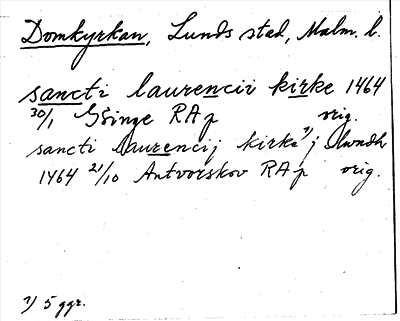 Domkyrkan, Lunds stad, Malm. l.
sancti laurencii kirke 1464
30/1 Gisinge RAp orig.
sancti laurencij kirke 1) j lwndh
1464 21/10 Antvorskov RAp orig.
1) 5 ggr.